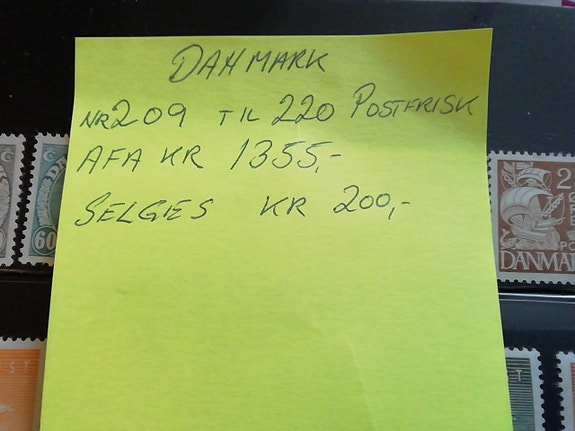 DANMARK
NR 209 TIL 220 POSTFRISK
AFA KR 1355,-
SELGES KR 200,-
60
2
DANMA